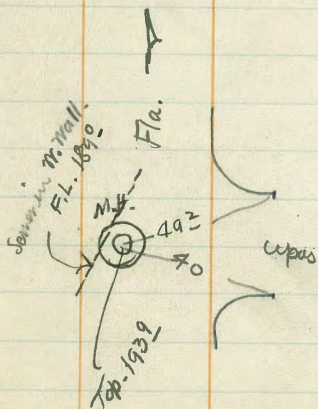 Sewer in W. Wall.
F.L. 1890
Fla.
M.H.
49²
40
Top-1939